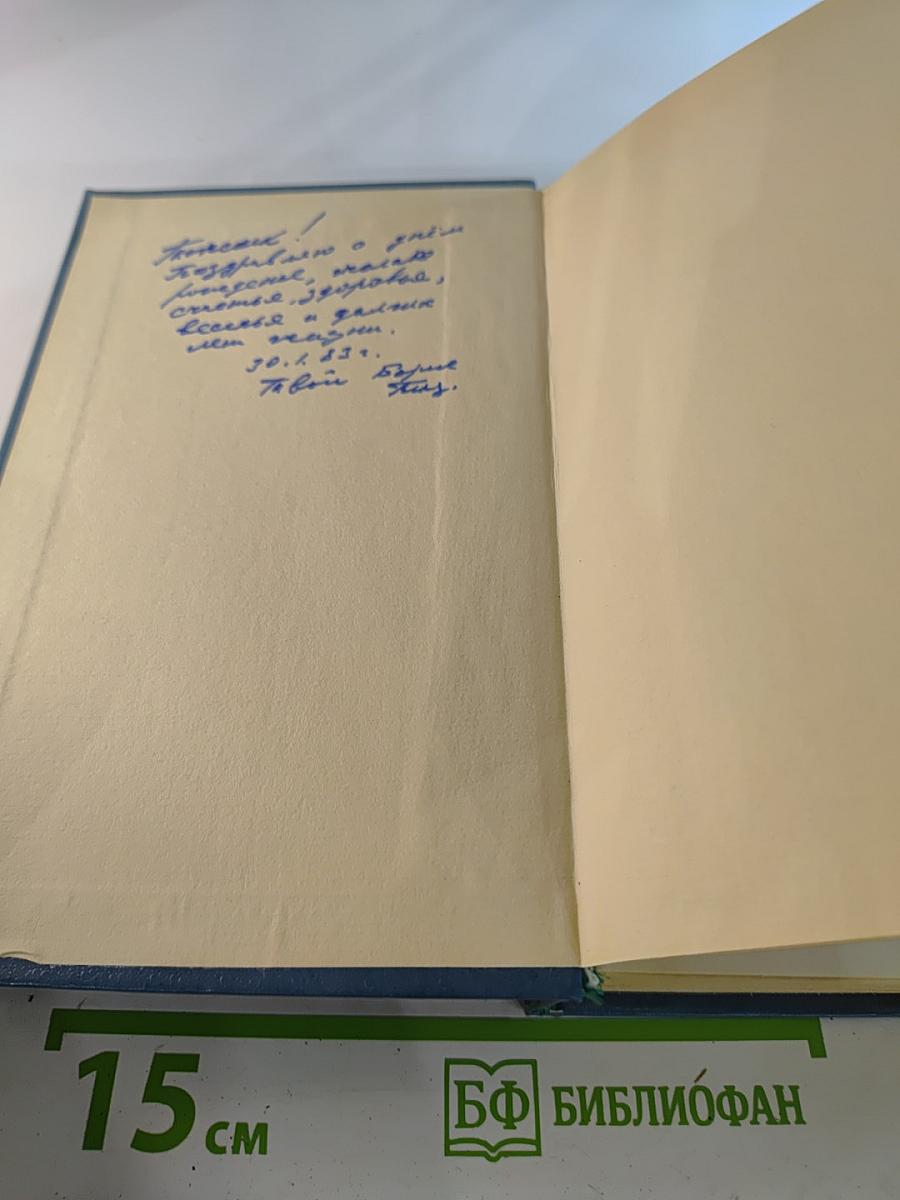 Поздравляю с днём
рождения, желаю
счастья, здоровья,
веселья и долгих
лет жизни.
30.1.83 г.
Твой
15 см
БФ БИБЛИОФАН